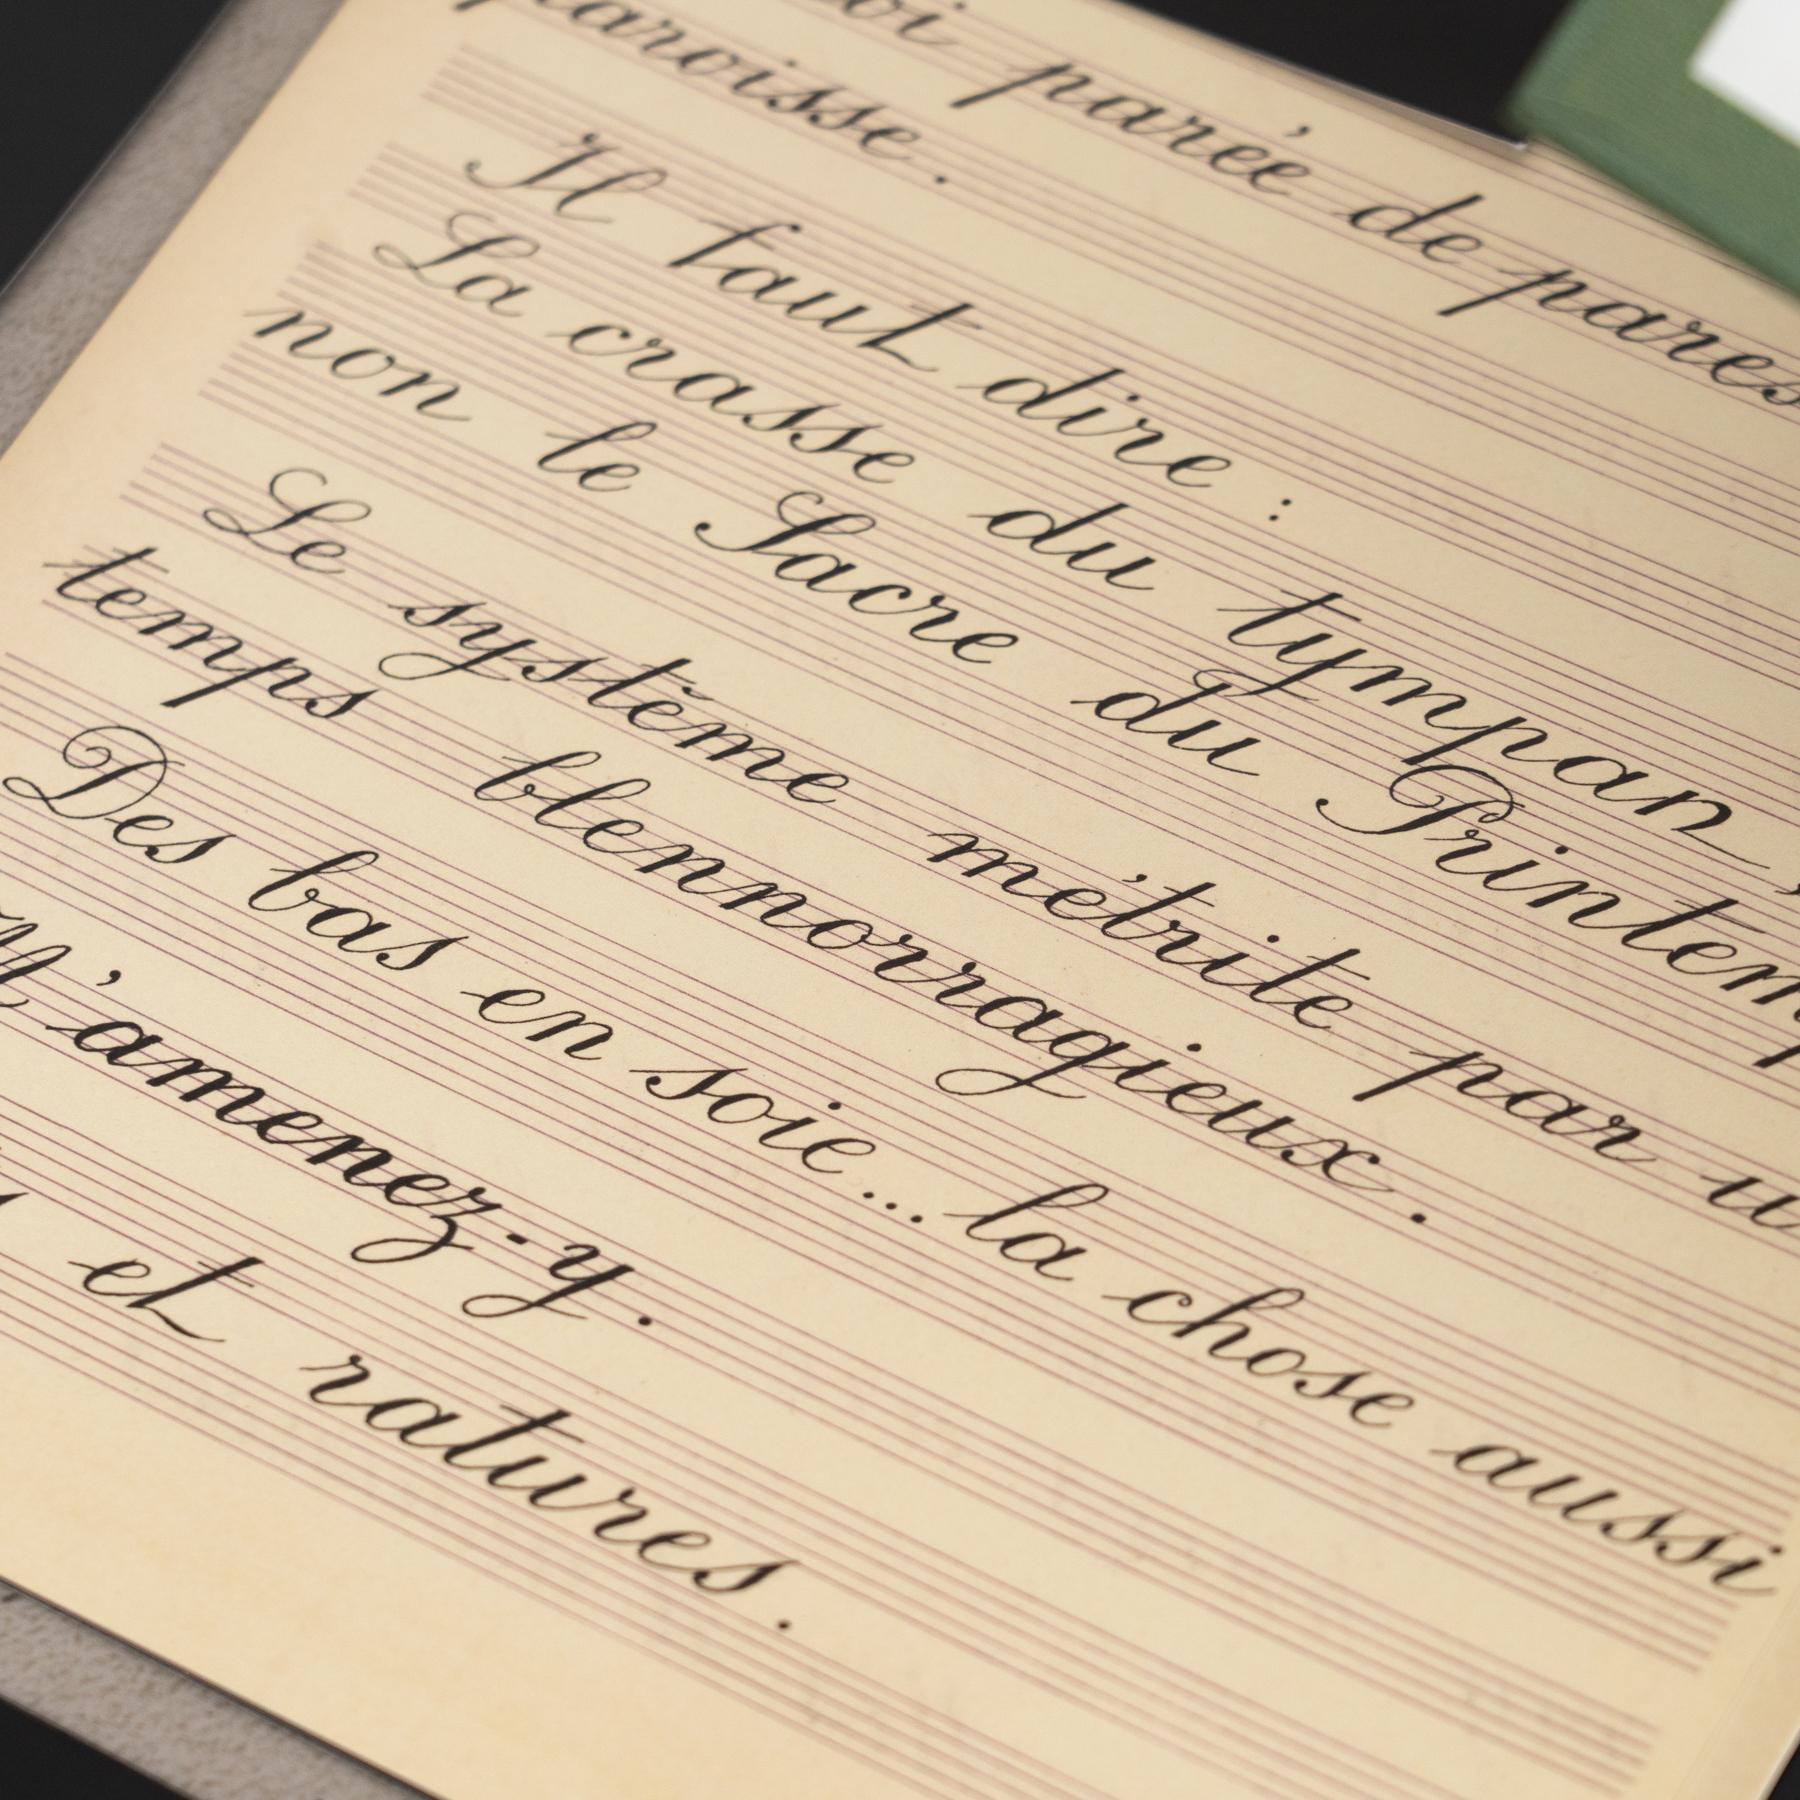 parée de pares
paroisse.
Il faut dire :
La crasse du tympan,
non le Sacre du Printemp
Le système métrite par u
temps blennorragieux.
Des bas en soie... la chose aussi
M'amenez-y.
et ratures.